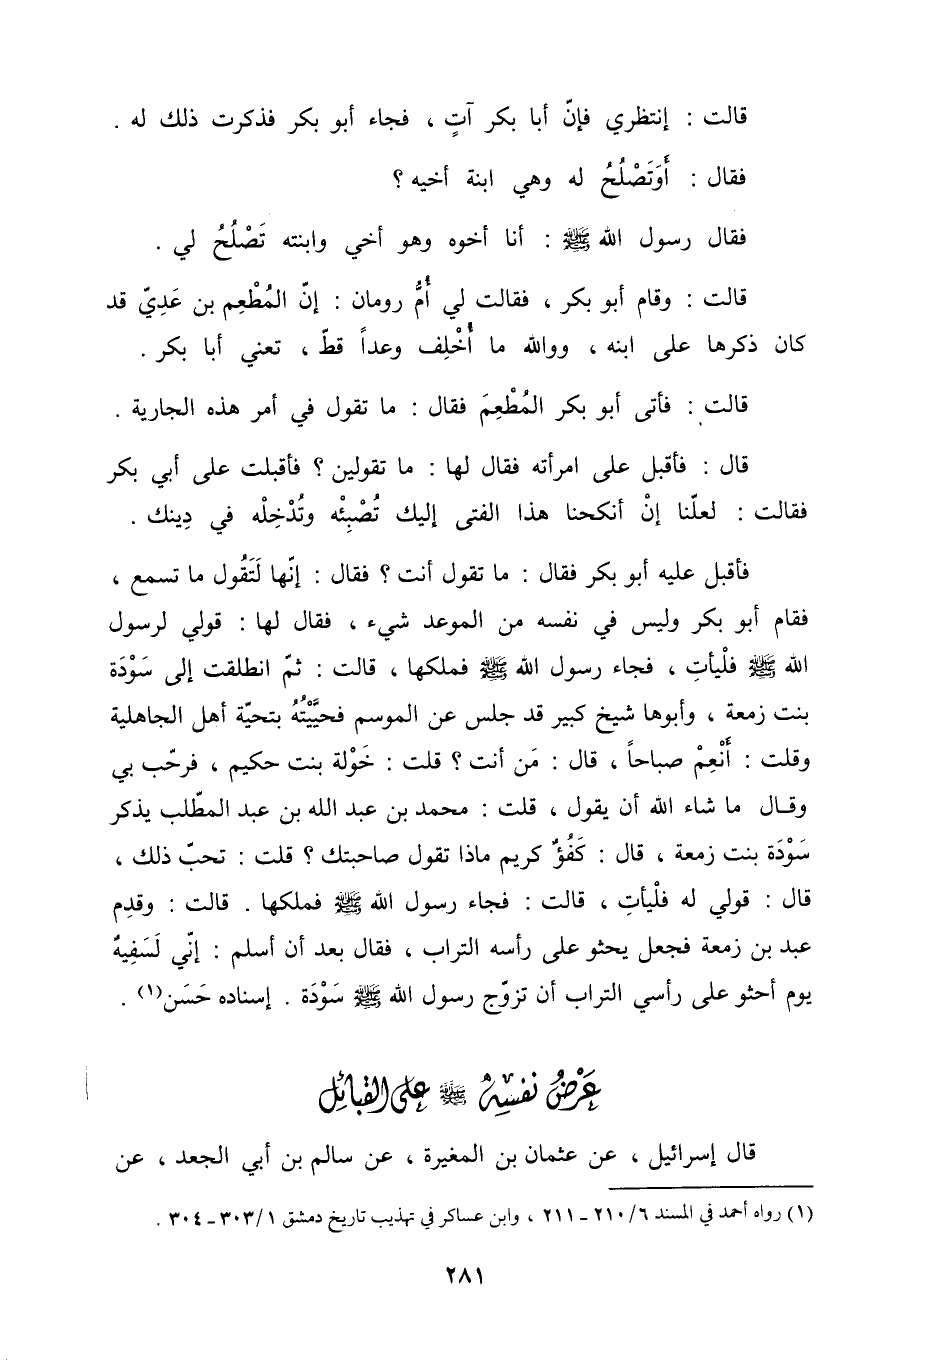 قالت : إنتظري فإنّ أبا بكر آتٍ ، فجاء أبو بكر فذكرت ذلك له .
فقال : أَوَتَصْلُحُ له وهي ابنة أخيه ؟
فقال رسول الله ﷺ : أنا أخوه وهو أخي وابنته تَصْلُحُ لي .
قالت : وقام أبو بكر ، فقالت لي أُمُّ رومان : إنّ المُطْعِم بن عَدِيّ قد
كان ذكرها على ابنه ، ووالله ما أُخْلِف وعداً قطّ ، تعني أبا بكر .
قالت : فأتى أبو بكر المُطْعِمَ فقال : ما تقول في أمر هذه الجارية .
قال : فأقبل على امرأته فقال لها : ما تقولين ؟ فأقبلت على أبي بكر
فقالت : لعلّنا إنْ أنكحنا هذا الفتى إليك تُصْبِئْه وتُدْخِلْه في دِينك .
فأقبل عليه أبو بكر فقال : ما تقول أنت ؟ فقال : إنّها لَتَقُول ما تسمع ،
فقام أبو بكر وليس في نفسه من الموعد شيء ، فقال لها : قولي لرسول
الله ﷺ فلْيأتِ ، فجاء رسول الله ﷺ فملكها ، قالت : ثمّ انطلقت إلى سَوْدَة
بنت زمعة ، وأبوها شيخ كبير قد جلس عن الموسم فحيَّيْتُهُ بتحيّة أهل الجاهلية
وقلت : أَنْعِمْ صباحاً ، قال : مَن أنت ؟ قلت : خَوْلة بنت حكيم ، فرحّب بي
وقال ما شاء الله أن يقول ، قلت : محمد بن عبد الله بن عبد المطّلب يذكر
سَوْدَة بنت زمعة ، قال : كَفُؤٌ كريم ماذا تقول صاحبتك ؟ قلت : تحبّ ذلك ،
قال : قولي له فلْيأتِ ، قالت : فجاء رسول الله ﷺ فملكها . قالت : وقدِم
عبد بن زمعة فجعل يحثو على رأسه التراب ، فقال بعد أن أسلم : إنّي لَسَفِيهٌ
يوم أحثو على رأسي التراب أن تزوّج رسول الله ﷺ سَوْدَة . إسناده حَسَن(١) .
عَرْضُ نفسِهِ ﷺ على القبائل
قال إسرائيل ، عن عثمان بن المغيرة ، عن سالم بن أبي الجعد ، عن
(١) رواه أحمد في المسند ٦/ ٢١٠ ــ ٢١١ ، وابن عساكر في تهذيب تاريخ دمشق ١/ ٣٠٣ ــ ٣٠٤ .
٢٨١